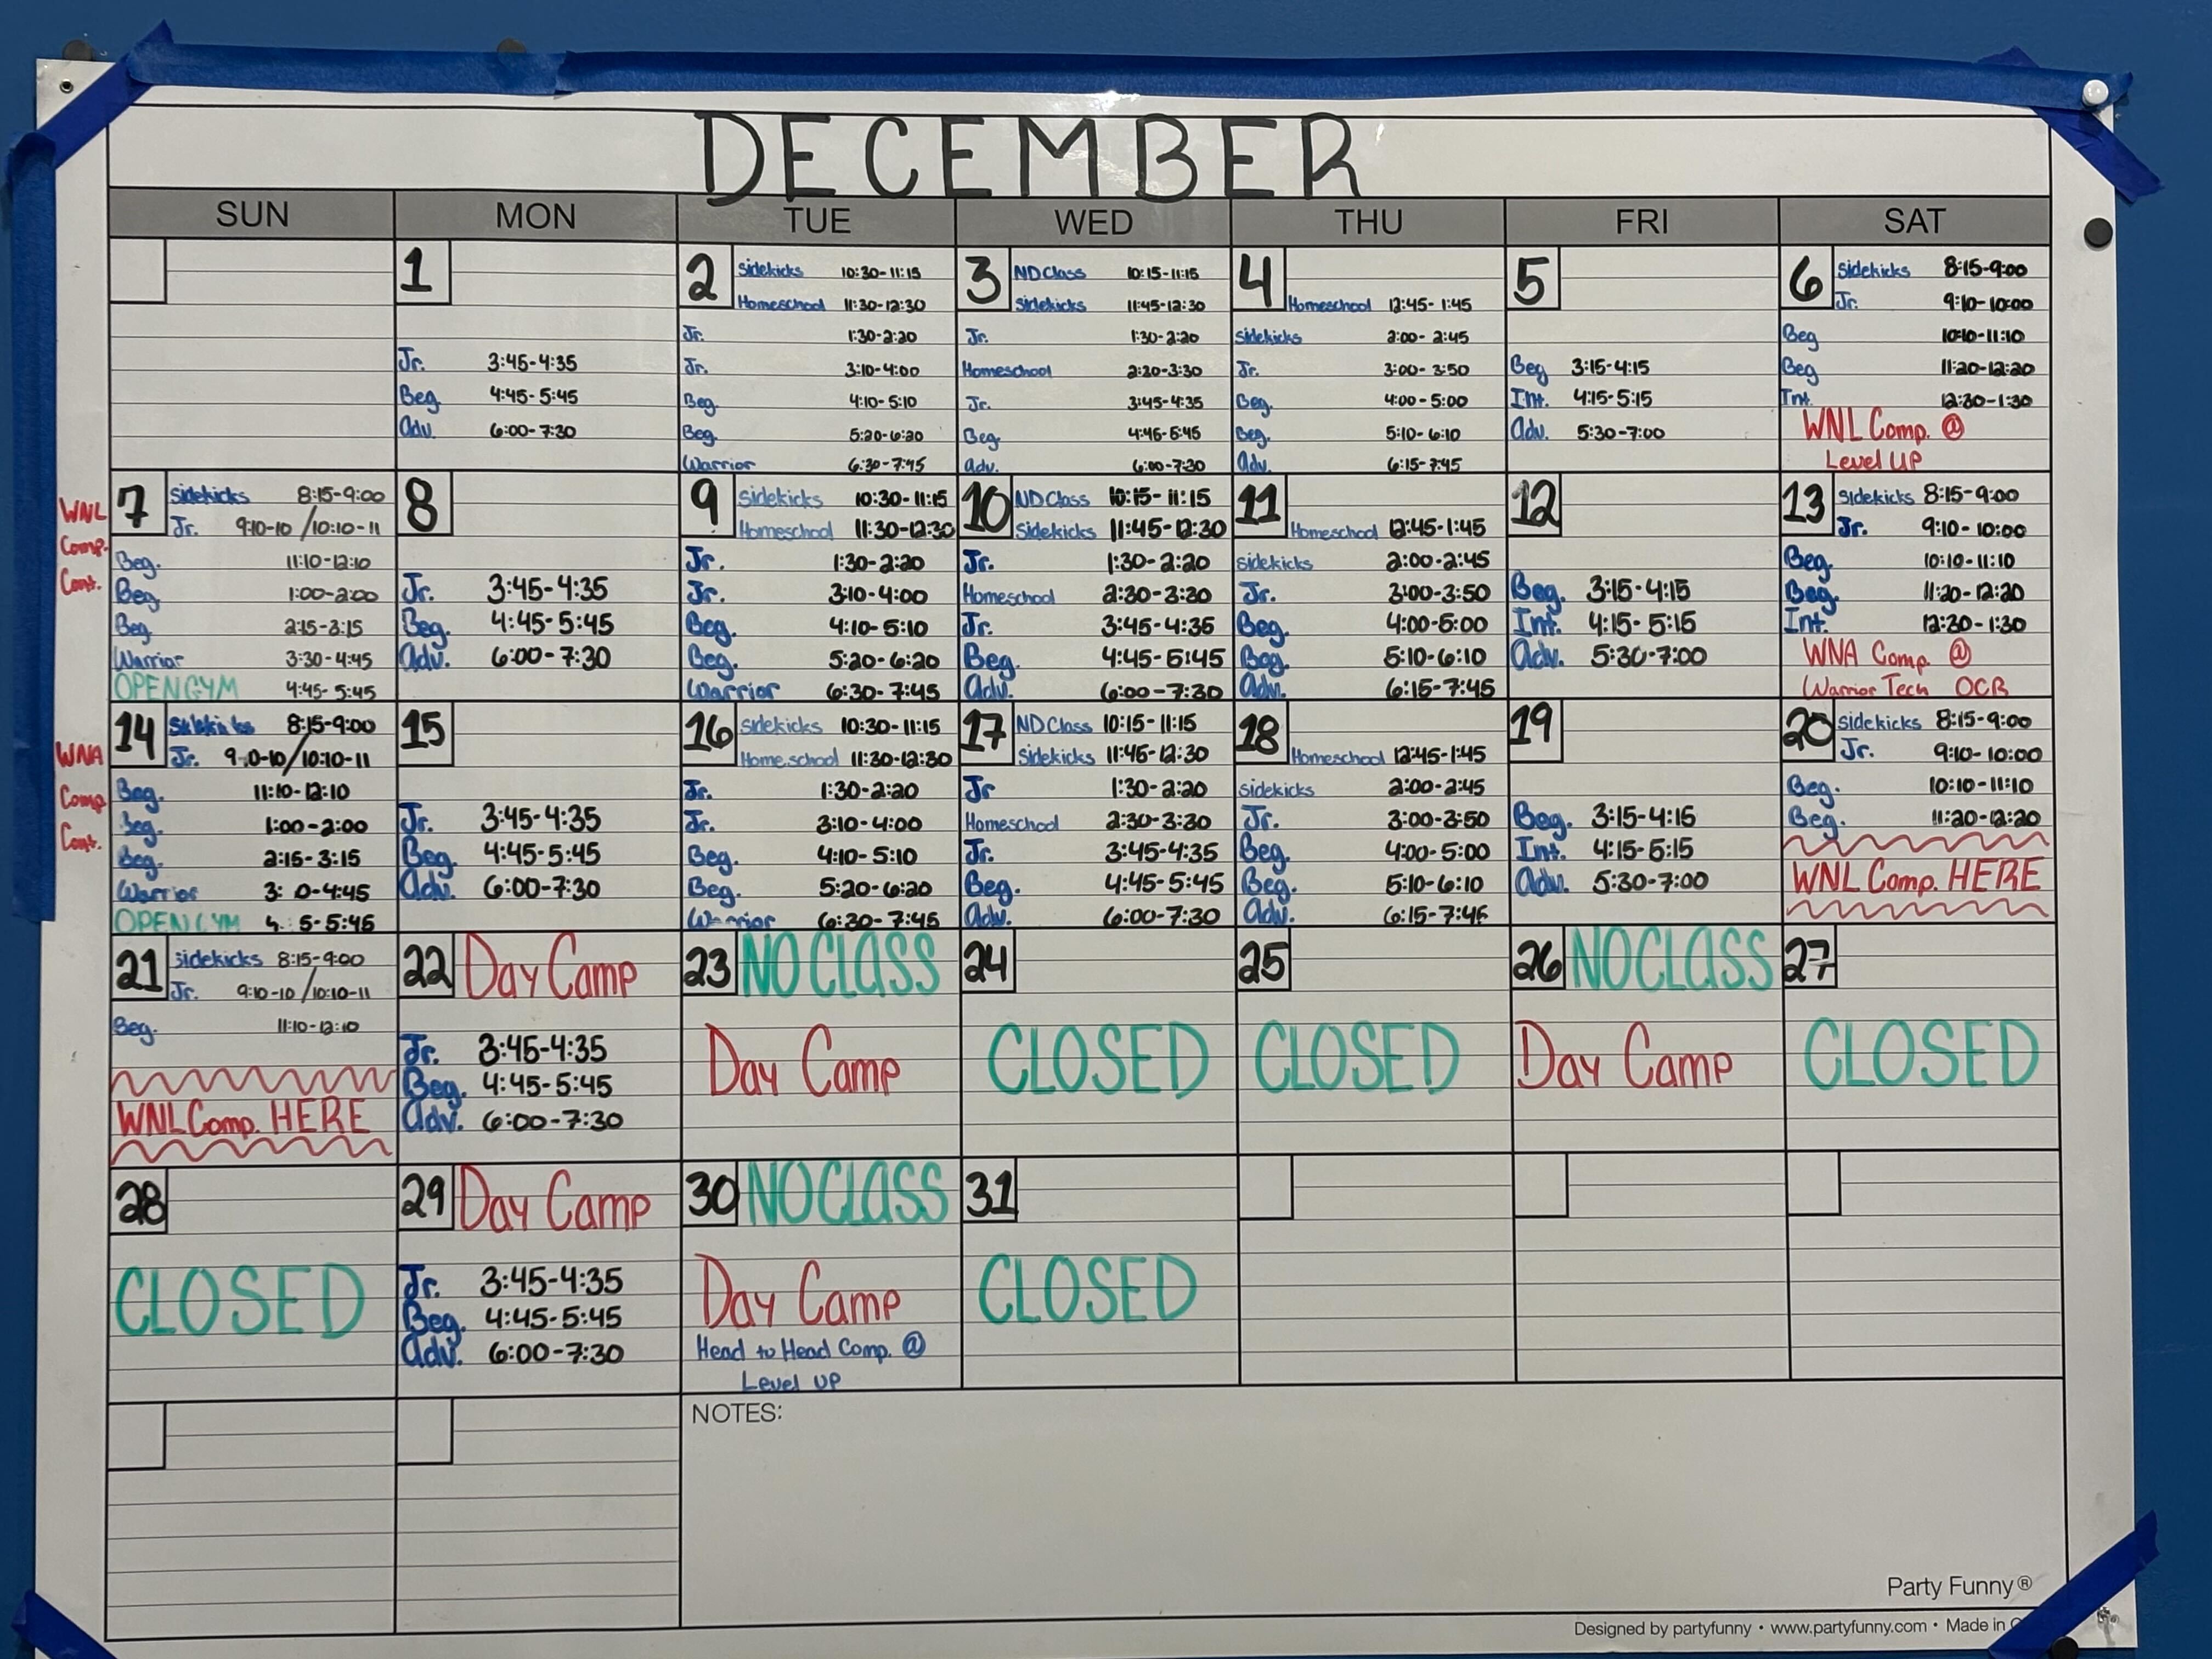 DECEMBER
SUN MON TUE WED THU FRI SAT
1
Jr. 3:45-4:35
Beg. 4:45-5:45
Adv. 6:00-7:30
2 Sidekicks 10:30-11:15
Homeschool 11:30-12:30
Jr. 1:30-2:20
Jr. 3:10-4:00
Beg. 4:10-5:10
Beg. 5:20-6:20
Warrior 6:30-7:45
3 ND Class 10:15-11:15
Sidekicks 11:45-12:30
Jr. 1:30-2:20
Homeschool 2:30-3:30
Jr. 3:45-4:35
Beg. 4:45-5:45
Adv. 6:00-7:30
4
Homeschool 12:45-1:45
Sidekicks 2:00-2:45
Jr. 3:00-3:50
Beg. 4:00-5:00
Beg. 5:10-6:10
Adv. 6:15-7:45
5
Beg 3:15-4:15
Int. 4:15-5:15
Adv. 5:30-7:00
6 Sidekicks 8:15-9:00
Jr. 9:10-10:00
Beg 10:10-11:10
Beg 11:20-12:20
Int. 12:30-1:30
WNL Comp. @
Level UP
WNL
Comp.
Cont.
7 Sidekicks 8:15-9:00
Jr. 9:10-10/10:10-11
Beg. 11:10-12:10
Beg 1:00-2:00
Beg 2:15-3:15
Warrior 3:30-4:45
OPEN GYM 4:45-5:45
8
Jr. 3:45-4:35
Beg. 4:45-5:45
Adv. 6:00-7:30
9 Sidekicks 10:30-11:15
Homeschool 11:30-12:30
Jr. 1:30-2:20
Jr. 3:10-4:00
Beg. 4:10-5:10
Beg. 5:20-6:20
Warrior 6:30-7:45
10 ND Class 10:15-11:15
Sidekicks 11:45-12:30
Jr. 1:30-2:20
Homeschool 2:30-3:30
Jr. 3:45-4:35
Beg. 4:45-5:45
Adv. 6:00-7:30
11
Homeschool 12:45-1:45
Sidekicks 2:00-2:45
Jr. 3:00-3:50
Beg. 4:00-5:00
Beg. 5:10-6:10
Adv. 6:15-7:45
12
Beg. 3:15-4:15
Int. 4:15-5:15
Adv. 5:30-7:00
13 Sidekicks 8:15-9:00
Jr. 9:10-10:00
Beg. 10:10-11:10
Beg. 11:20-12:20
Int. 12:30-1:30
WNA Comp. @
Warrior Tech OCR
WNA
Comp
Cont.
14 Sidekicks 8:15-9:00
Jr. 9:10-10/10:10-11
Beg. 11:10-12:10
Beg. 1:00-2:00
Beg. 2:15-3:15
Warrior 3: 0-4:45
OPEN GYM 4: 5-5:45
15
Jr. 3:45-4:35
Beg. 4:45-5:45
Adv. 6:00-7:30
16 Sidekicks 10:30-11:15
Homeschool 11:30-12:30
Jr. 1:30-2:20
Jr. 3:10-4:00
Beg. 4:10-5:10
Beg. 5:20-6:20
Warrior 6:30-7:45
17 ND Class 10:15-11:15
Sidekicks 11:45-12:30
Jr 1:30-2:20
Homeschool 2:30-3:30
Jr. 3:45-4:35
Beg. 4:45-5:45
Adv. 6:00-7:30
18
Homeschool 12:45-1:45
Sidekicks 2:00-2:45
Jr. 3:00-3:50
Beg. 4:00-5:00
Beg. 5:10-6:10
Adv. 6:15-7:45
19
Beg. 3:15-4:15
Int. 4:15-5:15
Adv. 5:30-7:00
20 Sidekicks 8:15-9:00
Jr. 9:10-10:00
Beg. 10:10-11:10
Beg. 11:20-12:20
WNL Comp. HERE
21 Sidekicks 8:15-9:00
Jr. 9:10-10/10:10-11
Beg. 11:10-12:10
WNL Comp. HERE
22 Day Camp
Jr. 3:45-4:35
Beg. 4:45-5:45
Adv. 6:00-7:30
23 NO CLASS
Day Camp
24
CLOSED
25
CLOSED
26 NO CLASS
Day Camp
27
CLOSED
28
CLOSED
29 Day Camp
Jr. 3:45-4:35
Beg. 4:45-5:45
Adv. 6:00-7:30
30 NO CLASS
Day Camp
Head to Head Comp. @
Level UP
31
CLOSED
NOTES:
Party Funny®
Designed by partyfunny • www.partyfunny.com • Made in